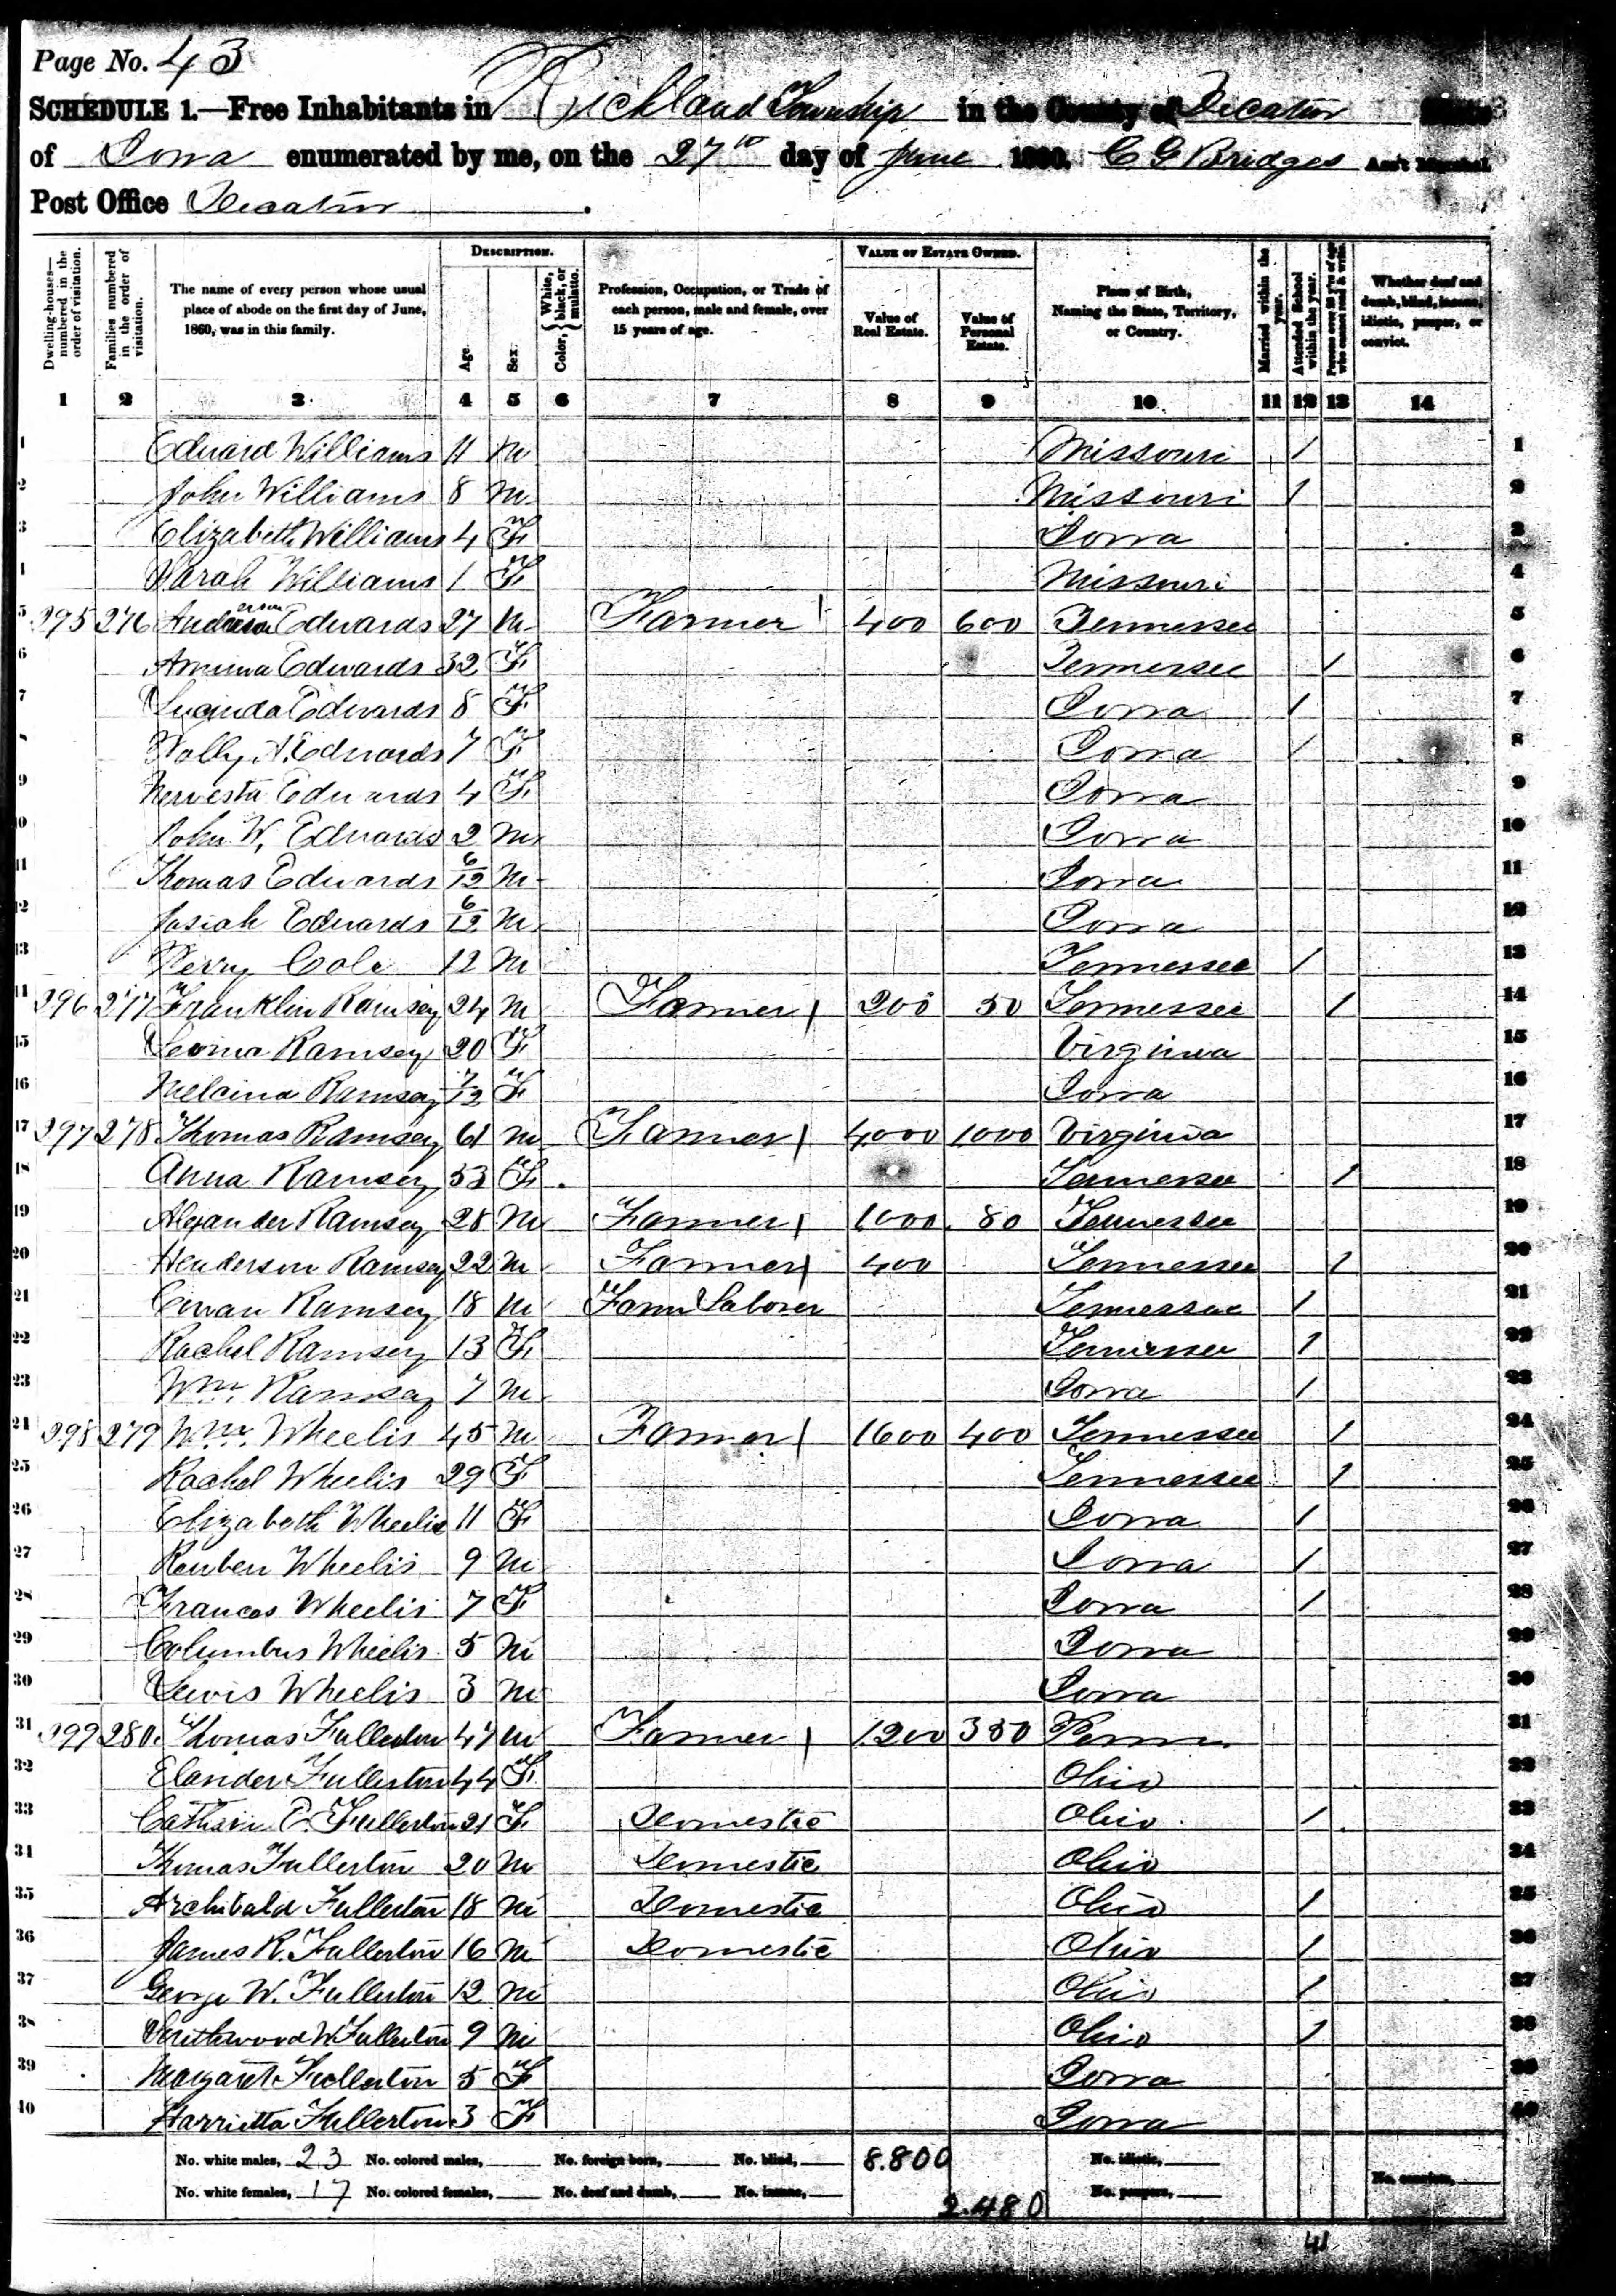 Page No. 43
SCHEDULE 1.—Free Inhabitants in Richland Township in the County of Decatur State
of Iowa enumerated by me, on the 27th day of June 1860. C G Bridges Ass't Marshal
Post Office Decatur.
Dwelling-houses—numbered in the order of visitation. Families numbered in the order of visitation. The name of every person whose usual place of abode on the first day of June, 1860, was in this family. DESCRIPTION. Age. Sex. Color, { White, black, or mulatto. Profession, Occupation, or Trade of each person, male and female, over 15 years of age. VALUE OF ESTATE OWNED. Value of Real Estate. Value of Personal Estate. Place of Birth, Naming the State, Territory, or Country. Married within the year. Attended School within the year. Persons over 20 y'rs of age who cannot read & write. Whether deaf and dumb, blind, insane, idiotic, pauper, or convict.
1 2 3 4 5 6 7 8 9 10 11 12 13 14
1 Edward Williams 11 M Missouri / 1
2 John Williams 8 M Missouri / 2
3 Elizabeth Williams 4 F Iowa 3
4 Sarah Williams 1 F Missouri 4
5 295 276 Anderson Edwards 27 M Farmer 400 600 Tennessee 5
6 Edwards 32 F Tennessee / 6
7 Lucinda Edwards 8 F Iowa / 7
8 Polly A. Edwards 7 F Iowa / 8
9 Edwards 4 F Iowa 9
10 John W. Edwards 2 M Iowa 10
11 Thomas Edwards 6/12 M Iowa 11
12 Josiah Edwards 6/12 M Iowa 12
13 Perry Cole 12 M Tennessee / 13
14 296 277 Franklin Ramsey 24 M Farmer 200 50 Tennessee / 14
15 Leoma Ramsey 20 F Virginia 15
16 Melcina Ramsey 7/12 F Iowa 16
17 297 278 Thomas Ramsey 61 M Farmer 4000 1000 Virginia 17
18 Anna Ramsey 53 F Tennessee / 18
19 Alexander Ramsey 28 M Farmer 1000 80 Tennessee 19
20 Henderson Ramsey 22 M Farmer 400 Tennessee / 20
21 Ramsey 18 M Farm Laborer Tennessee / 21
22 Rachel Ramsey 13 F Tennessee / 22
23 Wm. Ramsey 7 M Iowa / 23
24 298 279 Wm. Wheelis 45 M Farmer 1600 400 Tennessee / 24
25 Rachel Wheelis 29 F Tennessee / 25
26 Elizabeth Wheelis 11 F Iowa / 26
27 Reuben Wheelis 9 M Iowa / 27
28 Frances Wheelis 7 F Iowa / 28
29 Columbus Wheelis 5 M Iowa 29
30 Lewis Wheelis 3 M Iowa 30
31 299 280 Thomas Fullerton 47 M Farmer 1200 350 Penn 31
32 Elander Fullerton 44 F Ohio 32
33 Fullerton 21 F Domestic Ohio / 33
34 Thomas Fullerton 20 M Domestic Ohio 34
35 Archibald Fullerton 18 M Domestic Ohio / 35
36 James R. Fullerton 16 M Domestic Ohio / 36
37 George W. Fullerton 12 M Ohio / 37
38 Smithwood W Fullerton 9 M Ohio / 38
39 Margaret Fullerton 5 F Iowa 39
40 Harrietta Fullerton 3 F Iowa 40
No. white males, 23 No. colored males, No. foreign born, No. blind, 8.800 No. idiotic,
No. white females, 17 No. colored females, No. deaf and dumb, No. insane, 2.480 No. paupers, No. convicts,
41